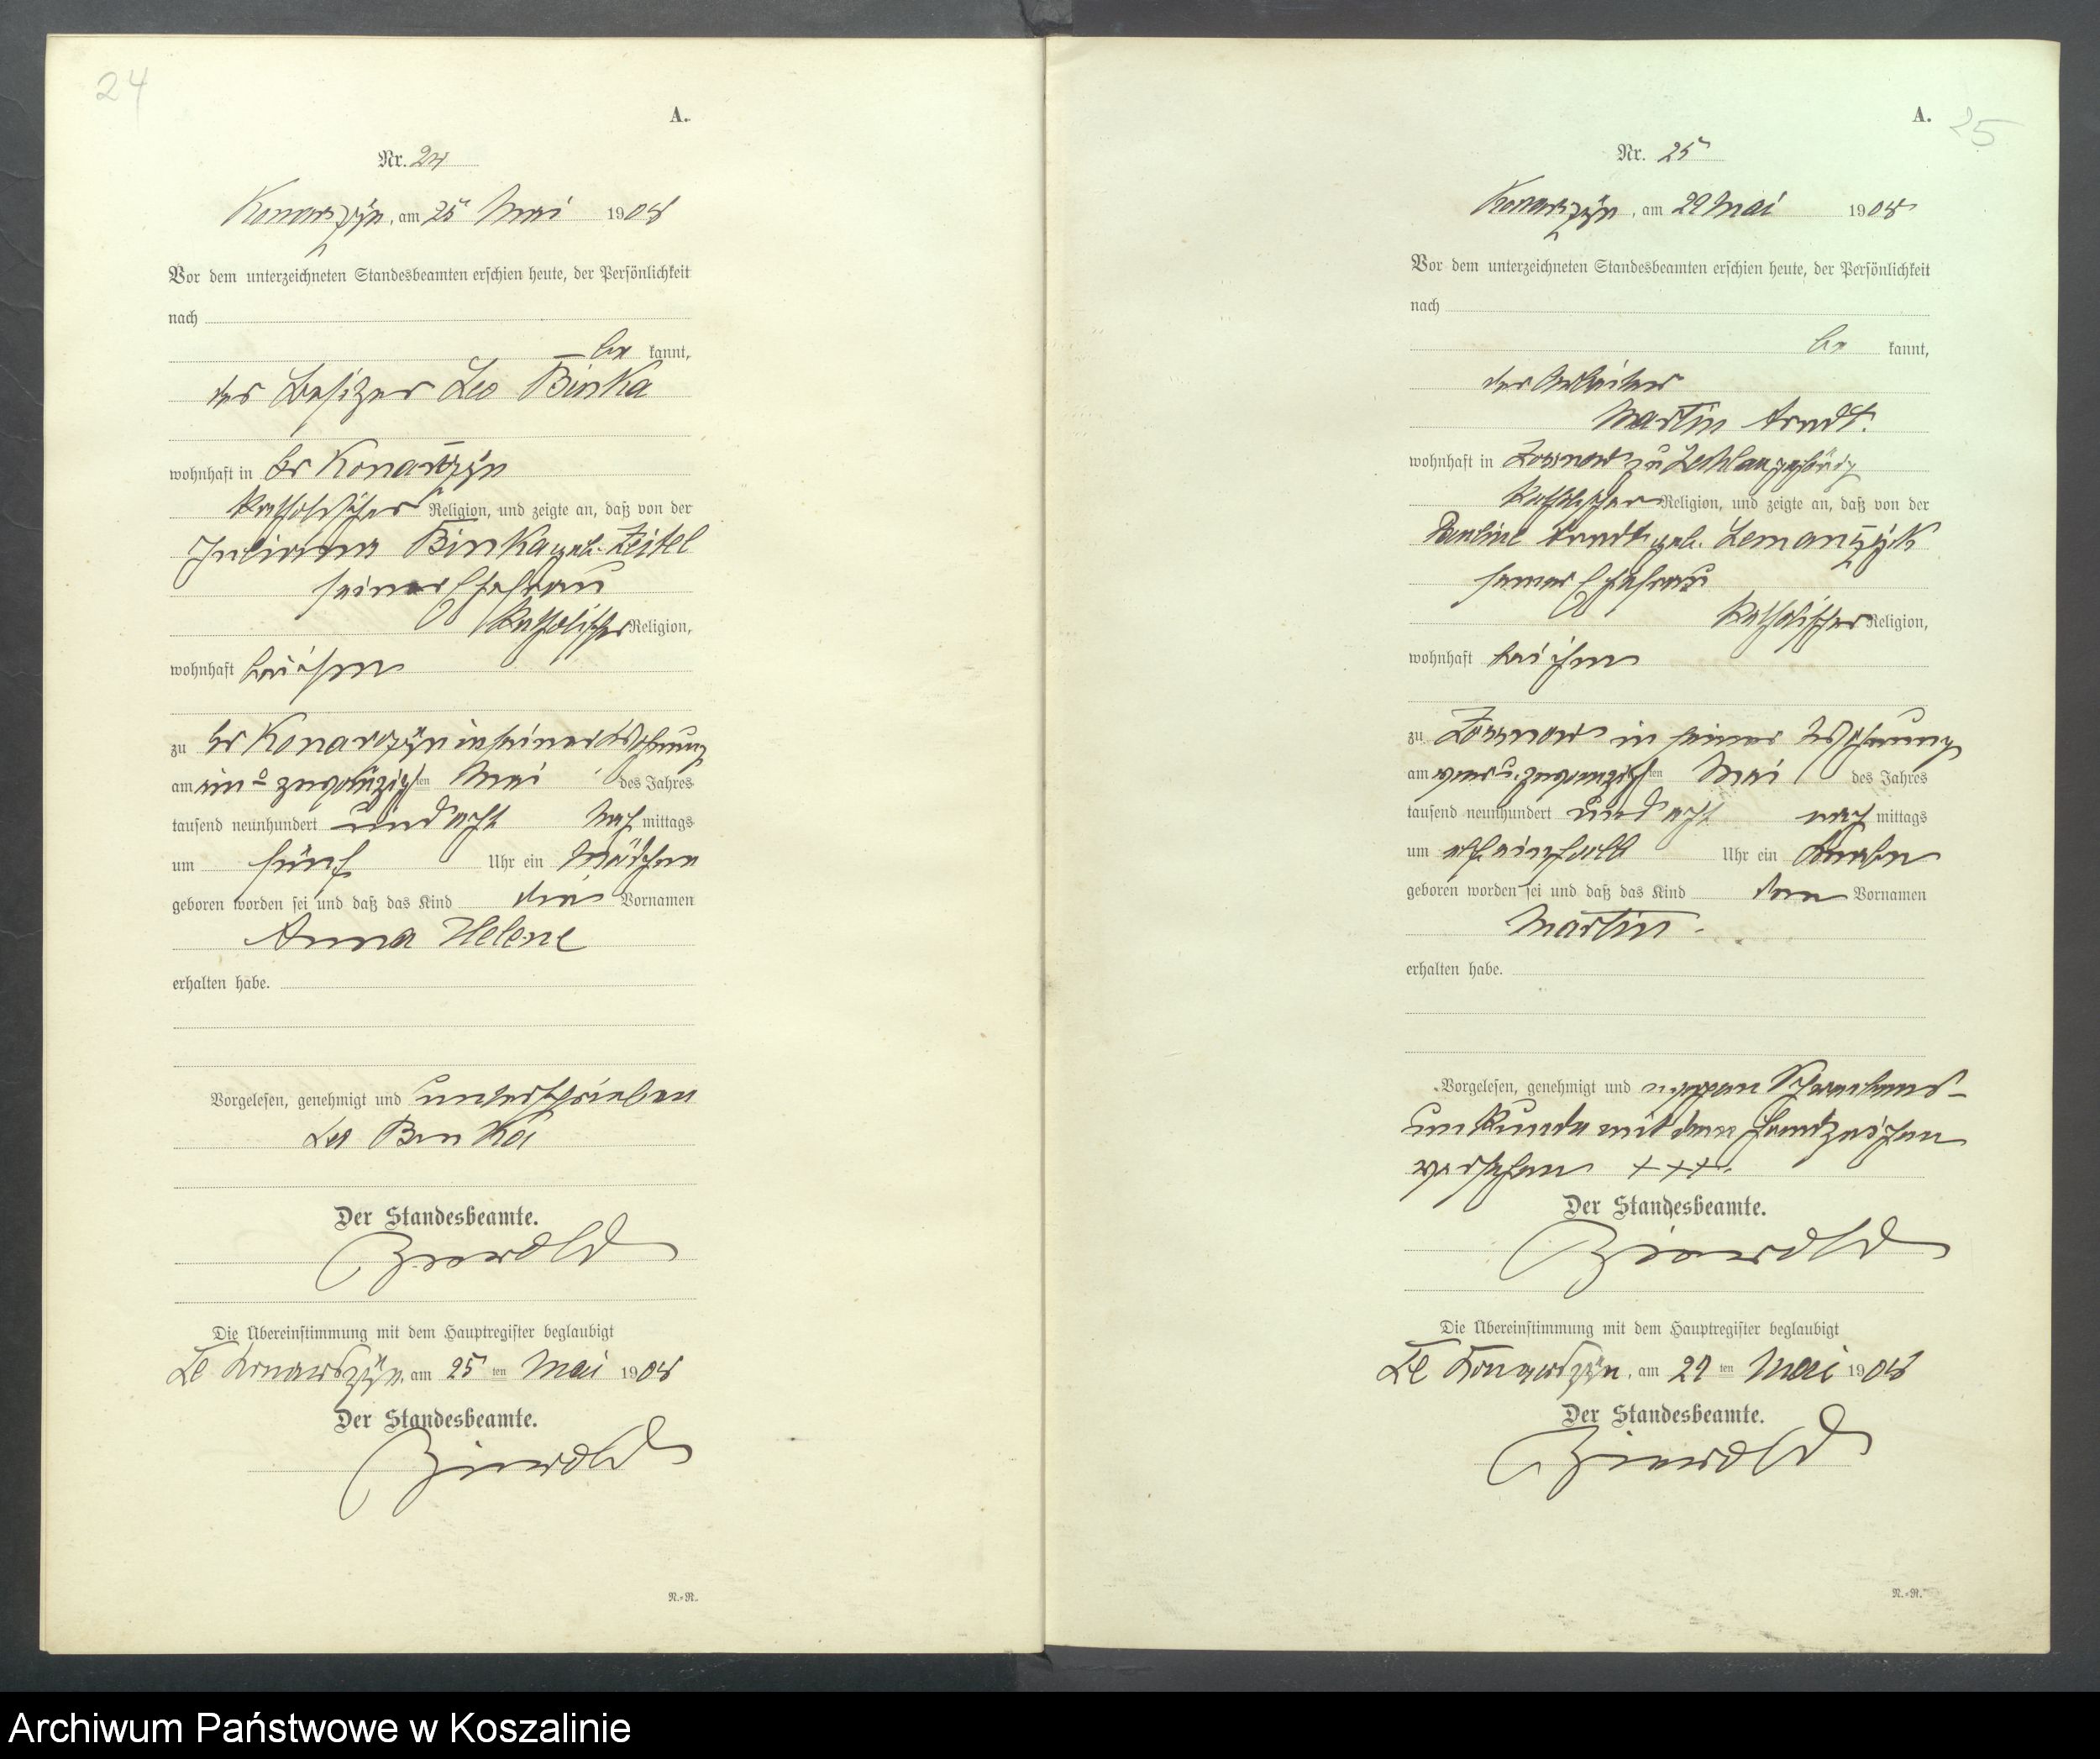 24
A.
Nr. 24
Konarzyn, am 25 Mai 1908
Vor dem unterzeichneten Standesbeamten erschien heute, der Persönlichkeit
nach
be kannt,
der Besitzer Leo Binka
wohnhaft in Gr Konarzyn
katholischer Religion, und zeigte an, daß von der
Julianna Binka geb. Zeitel
seiner Ehefrau
katholischer Religion,
wohnhaft bei ihm
zu Gr Konarzyn in seiner Wohnung
am ein u zwanzigsten Mai des Jahres
tausend neunhundert und acht Nach mittags
um fünf Uhr ein Mädchen
geboren worden sei und daß das Kind die Vornamen
Anna Helene
erhalten habe.
Vorgelesen, genehmigt und unterschrieben
Leo Binka
Der Standesbeamte.
Die Übereinstimmung mit dem Hauptregister beglaubigt
Konarzyn, am 25 ten Mai 1908
Der Standesbeamte.
N.-R.
25
A.
Nr. 25
Konarzyn, am 29 Mai 1908
Vor dem unterzeichneten Standesbeamten erschien heute, der Persönlichkeit
nach
be kannt,
der Arbeiter
Martin Arndt.
wohnhaft in zu gehörig
katholischer Religion, und zeigte an, daß von der
Pauline Arndt geb. Lemanzyk
seiner Ehefrau
katholischer Religion,
wohnhaft bei ihm
zu in seiner Wohnung
am zwanzigsten Mai des Jahres
tausend neunhundert und acht nach mittags
um Uhr ein Knabe
geboren worden sei und daß das Kind den Vornamen
Martin.
erhalten habe.
Vorgelesen, genehmigt und wegen Schreibens-
unkunde mit dem Handzeichen
versehen +++.
Der Standesbeamte.
Die Übereinstimmung mit dem Hauptregister beglaubigt
Konarzyn, am 29 ten Mai 1908
Der Standesbeamte.
N.-R.
Archiwum Państwowe w Koszalinie